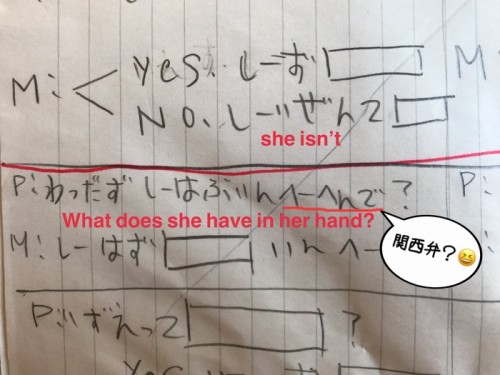 Yes. しーず
M:
M
No. しーいぜんて
she isn't
P: わっだず しーはぶいんへーへんで?
P:
What does she have in her hand?
関西弁?😆
M: しーはず いんへー
P: いずえって ?